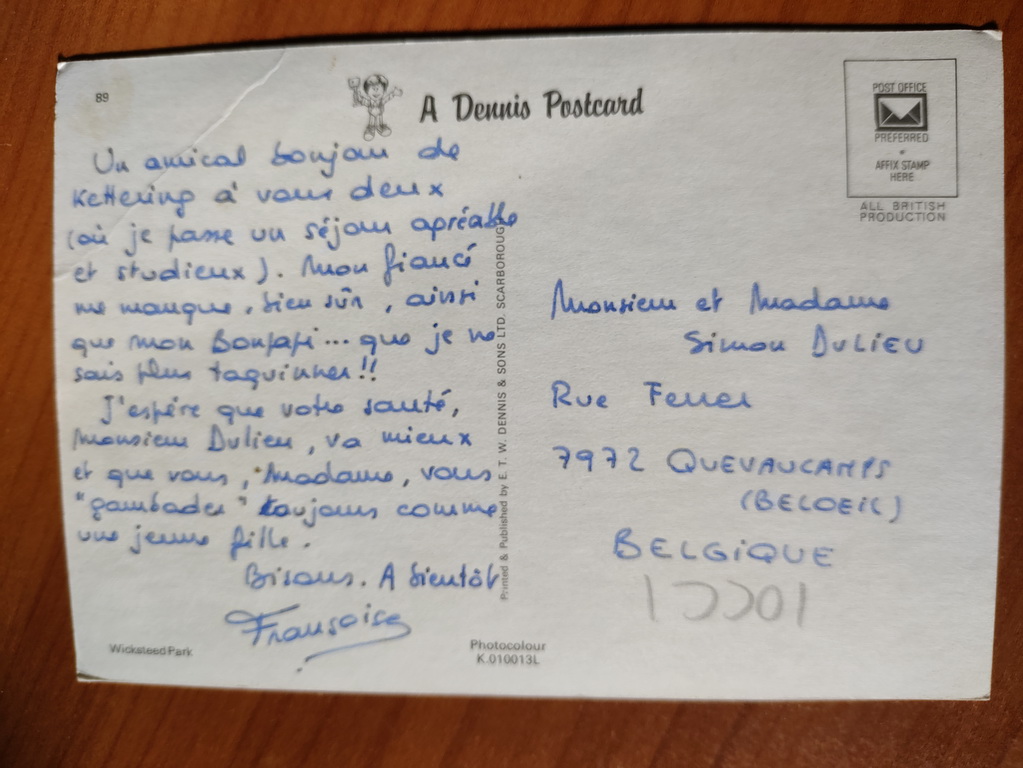 89
A Dennis Postcard
POST OFFICE
PREFERRED
AFFIX STAMP
HERE
ALL BRITISH
PRODUCTION
Un amical bonjour de
Kettering à vous deux
(où je passe un séjour apréable
et studieux). Mon fiancé
me manque, bien sûr, ainsi
que mon Bonpapi... que je ne
sais plus taquinner!!
J'espère que votre santé,
Monsieur Dulieu, va mieux
et que vous, Madame, vous
"gambader" toujours comme
une jeune fille.
Bisous. A bientôt
Françoise
Printed & Published by E. T. W. DENNIS & SONS LTD. SCARBOROUGH
Monsieur et Madame
Simon DULIEU
Rue Ferrer
7972 QUEVAUCAMPS
(BELOEIL)
BELGIQUE
Wicksteed Park
Photocolour
K.010013L